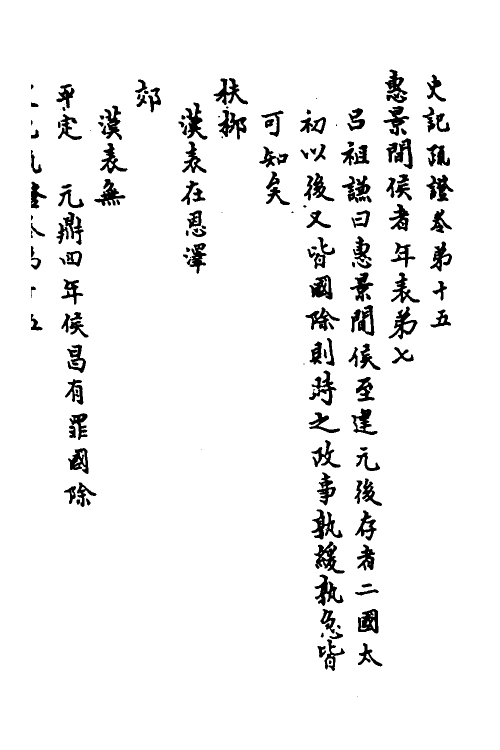 史記疏證卷第十五
惠景間侯者年表第七
呂祖謙曰惠景間侯至建元後存者二國太
初以後又皆國除則時之政事孰緩孰急皆
可知矣
扶柳
漢表在恩澤
郊
漢表無
平定　元鼎四年侯昌有罪國除